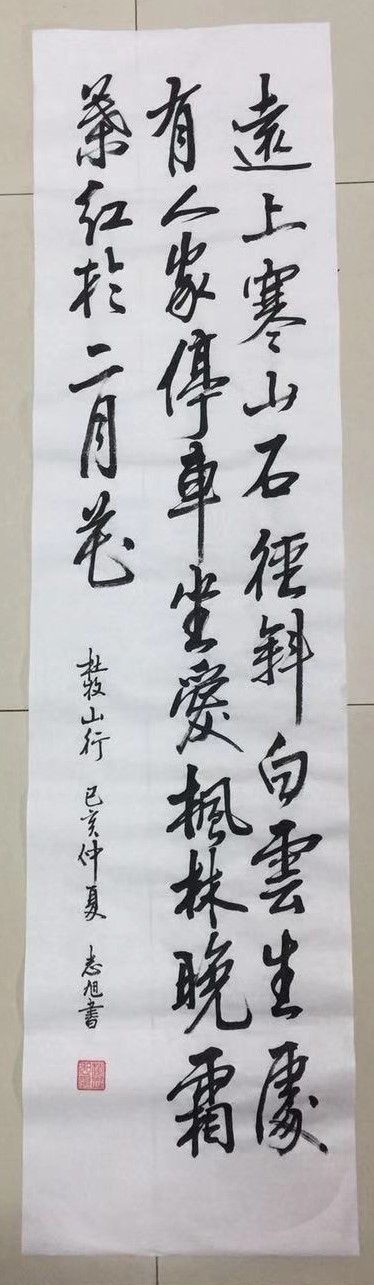 遠上寒山石徑斜白雲生處
有人家停車坐愛楓林晚霜
葉紅於二月花
杜牧山行 己亥仲夏 志旭書